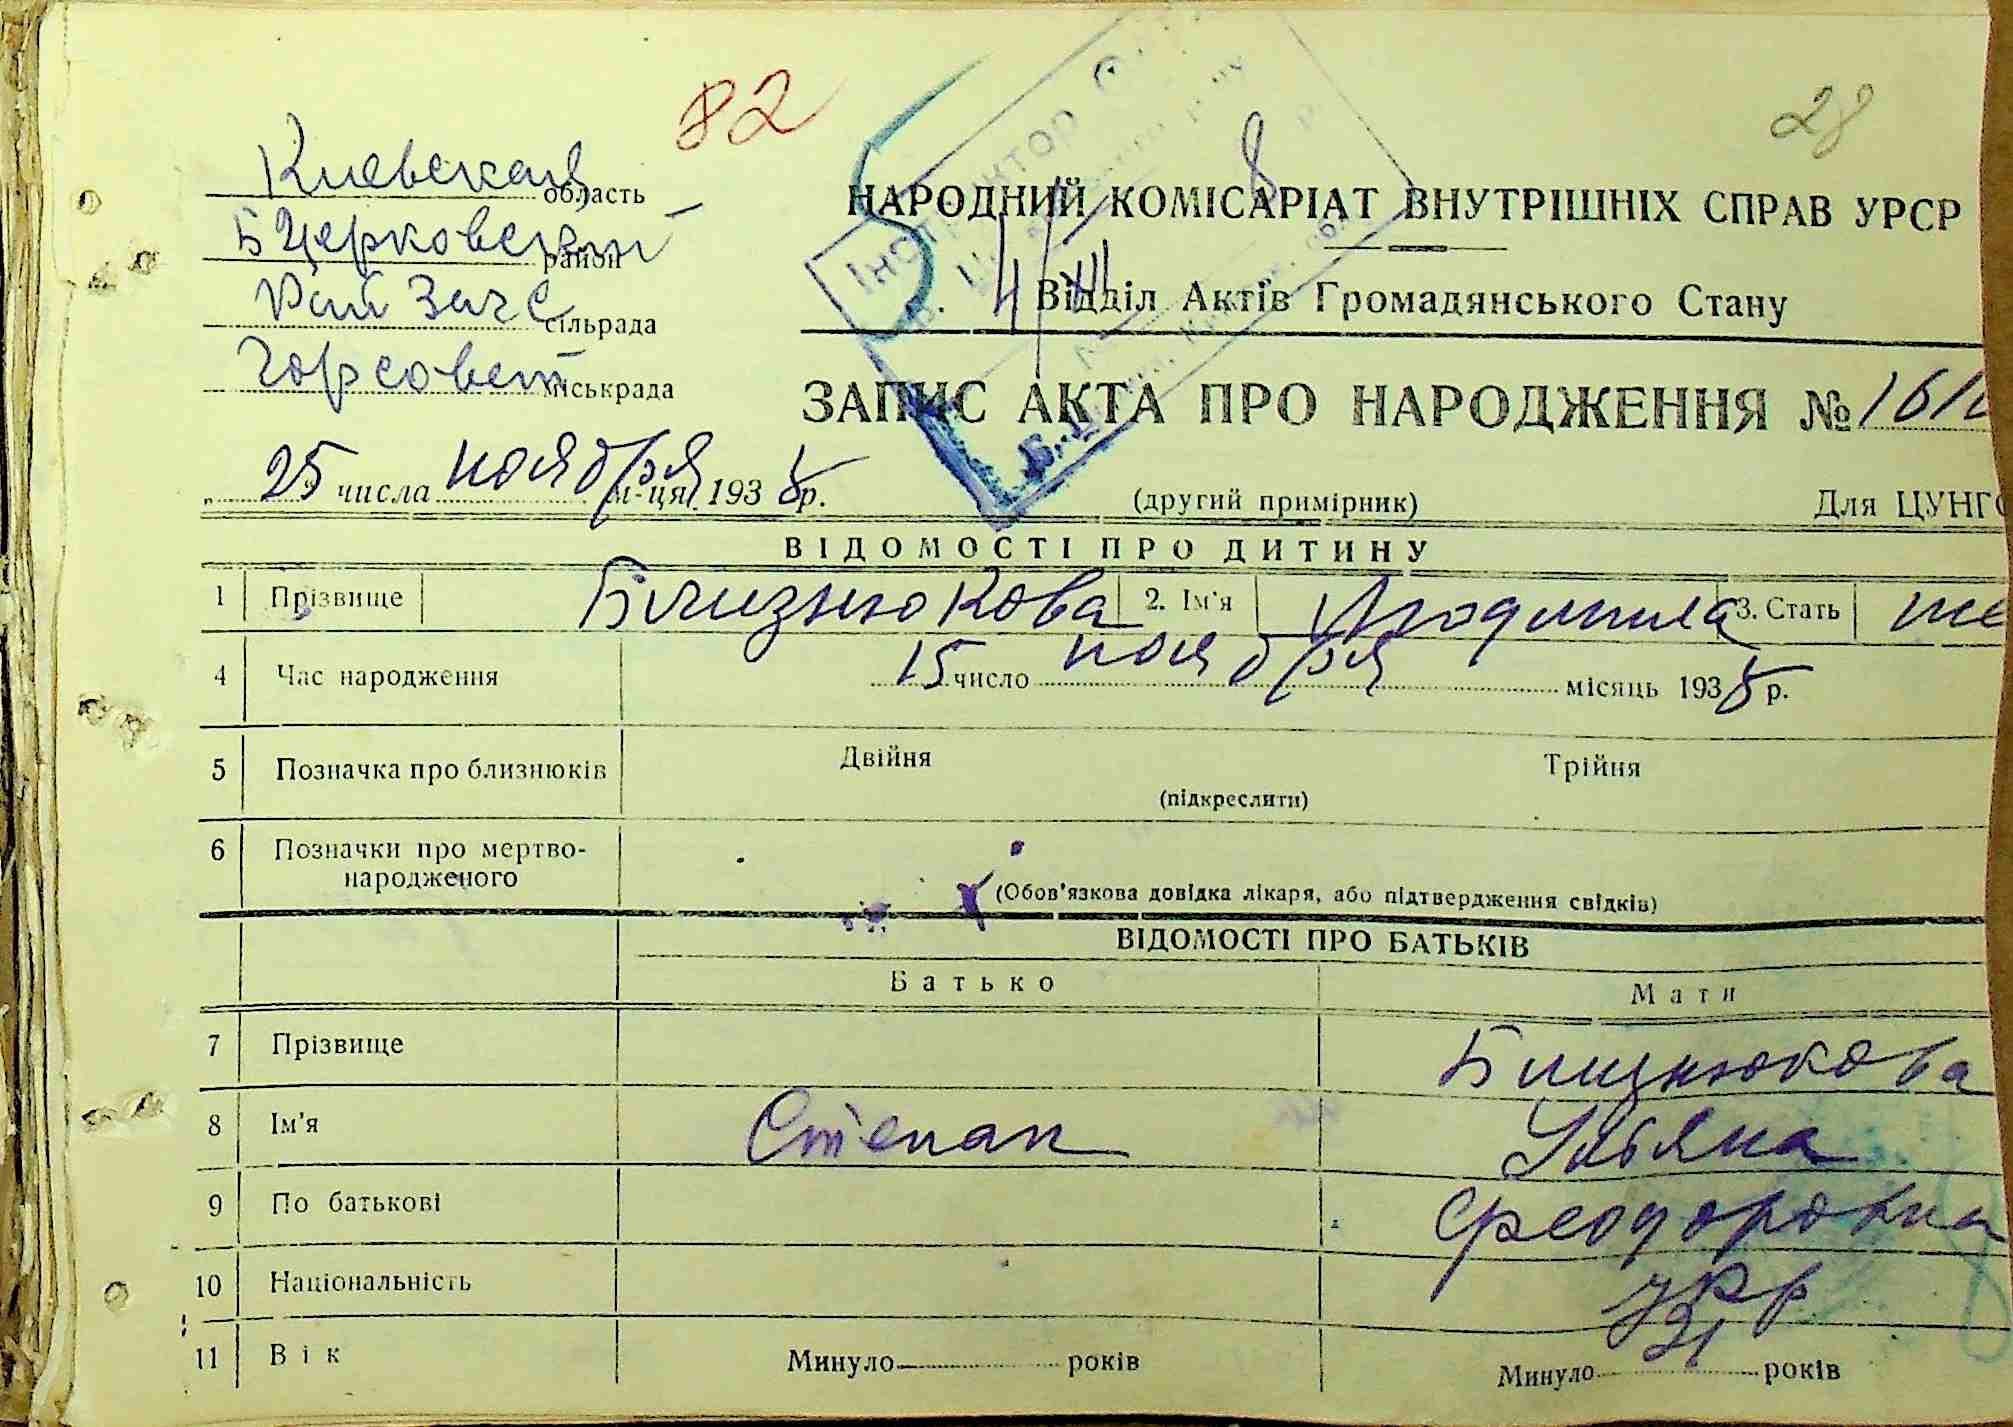 82
28
Киевская область
БЦерковский район
Рай Загс сільрада
Горсовет міськрада
НАРОДНИЙ КОМІСАРІАТ ВНУТРІШНІХ СПРАВ УРСР
Відділ Актів Громадянського Стану
ЗАПИС АКТА ПРО НАРОДЖЕННЯ №
„ 25 числа ноября м-ця 1938 р.
(другий примірник)
Для ЦУНГО
ВІДОМОСТІ ПРО ДИТИНУ
1 Прізвище Близнюкова 2. Ім'я Людмила 3. Стать же
4 Час народження 15 число ноября місяць 1938 р.
5 Позначка про близнюків Двійня Трійня
(підкреслити)
6 Позначки про мертво-
народженого
(Обов'язкова довідка лікаря, або підтвердження свідків)
ВІДОМОСТІ ПРО БАТЬКІВ
Батько Мати
7 Прізвище Близнюкова
8 Ім'я Степан Ульяна
9 По батькові Феодоровна
10 Національність укр
11 Вік Минуло років Минуло 31 років